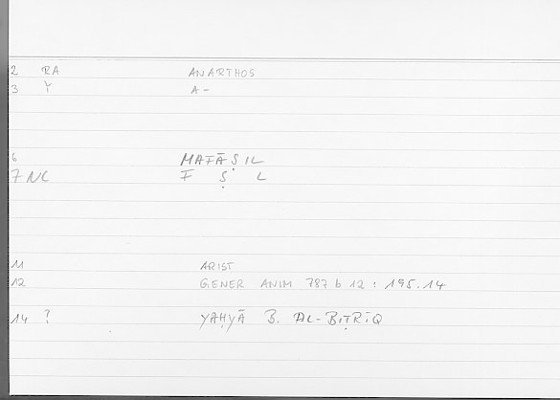 2 RA ANARTHOS
3 Y A-
6 MAFĀṢIL
7 NC F Ṣ L
11 ARIST
12 GENER ANIM 787 b 12 : 195.14
14 ? YAḤYĀ B. AL-BIṬRĪQ